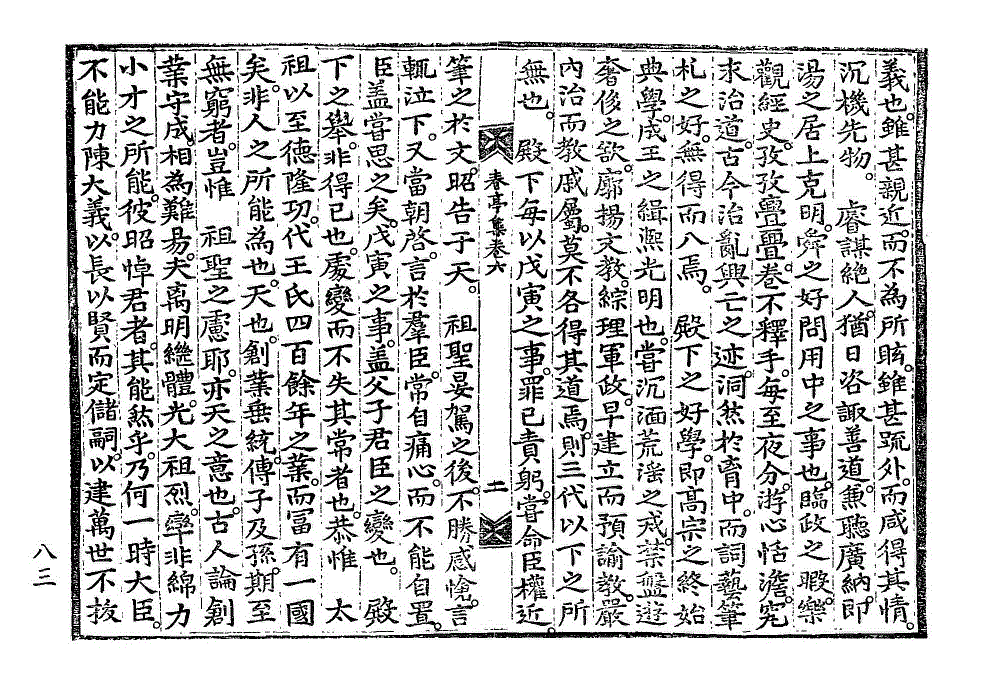 義也。雖甚親近。而不為所眩。雖甚疏外。而咸得其情。
沉機先物。 睿謀絶人。猶日咨諏善道。兼聽廣納。即
湯之居上克明。舜之好問用中之事也。臨政之暇。樂
觀經史。孜孜亹亹。卷不釋手。每至夜分。游心恬澹。究
求治道。古今治亂興亡之迹。洞然於胷中。而詞藝筆
札之好。無得而入焉。 殿下之好學。即高宗之終始
典學。成王之緝熙光明也。嘗沉湎荒滛之戒。禁盤遊
奢侈之欲。廓揚文教。綜理軍政。早建立而預諭教。嚴
內治而教戚屬。莫不各得其道焉。則三代以下之所
無也。 殿下每以戊寅之事。罪已責躬。嘗命臣權近
春亭集卷六 二
筆之於文。昭告于天。 祖聖晏駕之後。不勝感愴。言
輒泣下。又當朝啓。言於羣臣。常自痛心。而不能自置。
臣盖嘗思之矣。戊寅之事。盖父子君臣之變也。 殿
下之舉。非得已也。處變而不失其常者也。恭惟 太
祖以至德隆功。代王氏四百餘年之業。而冨有一國
矣。非人之所能為也。天也。創業垂統。傳子及孫。期至
無窮者。豈惟 祖聖之慮耶。亦天之意也。古人論創
業守成。相為難易。夫离明繼體。光大祖烈。率非綿力
小才之所能。彼昭悼君者。其能然乎。乃何一時大臣。
不能力陳大義。以長以賢而定儲嗣。以建萬世不拔
八三